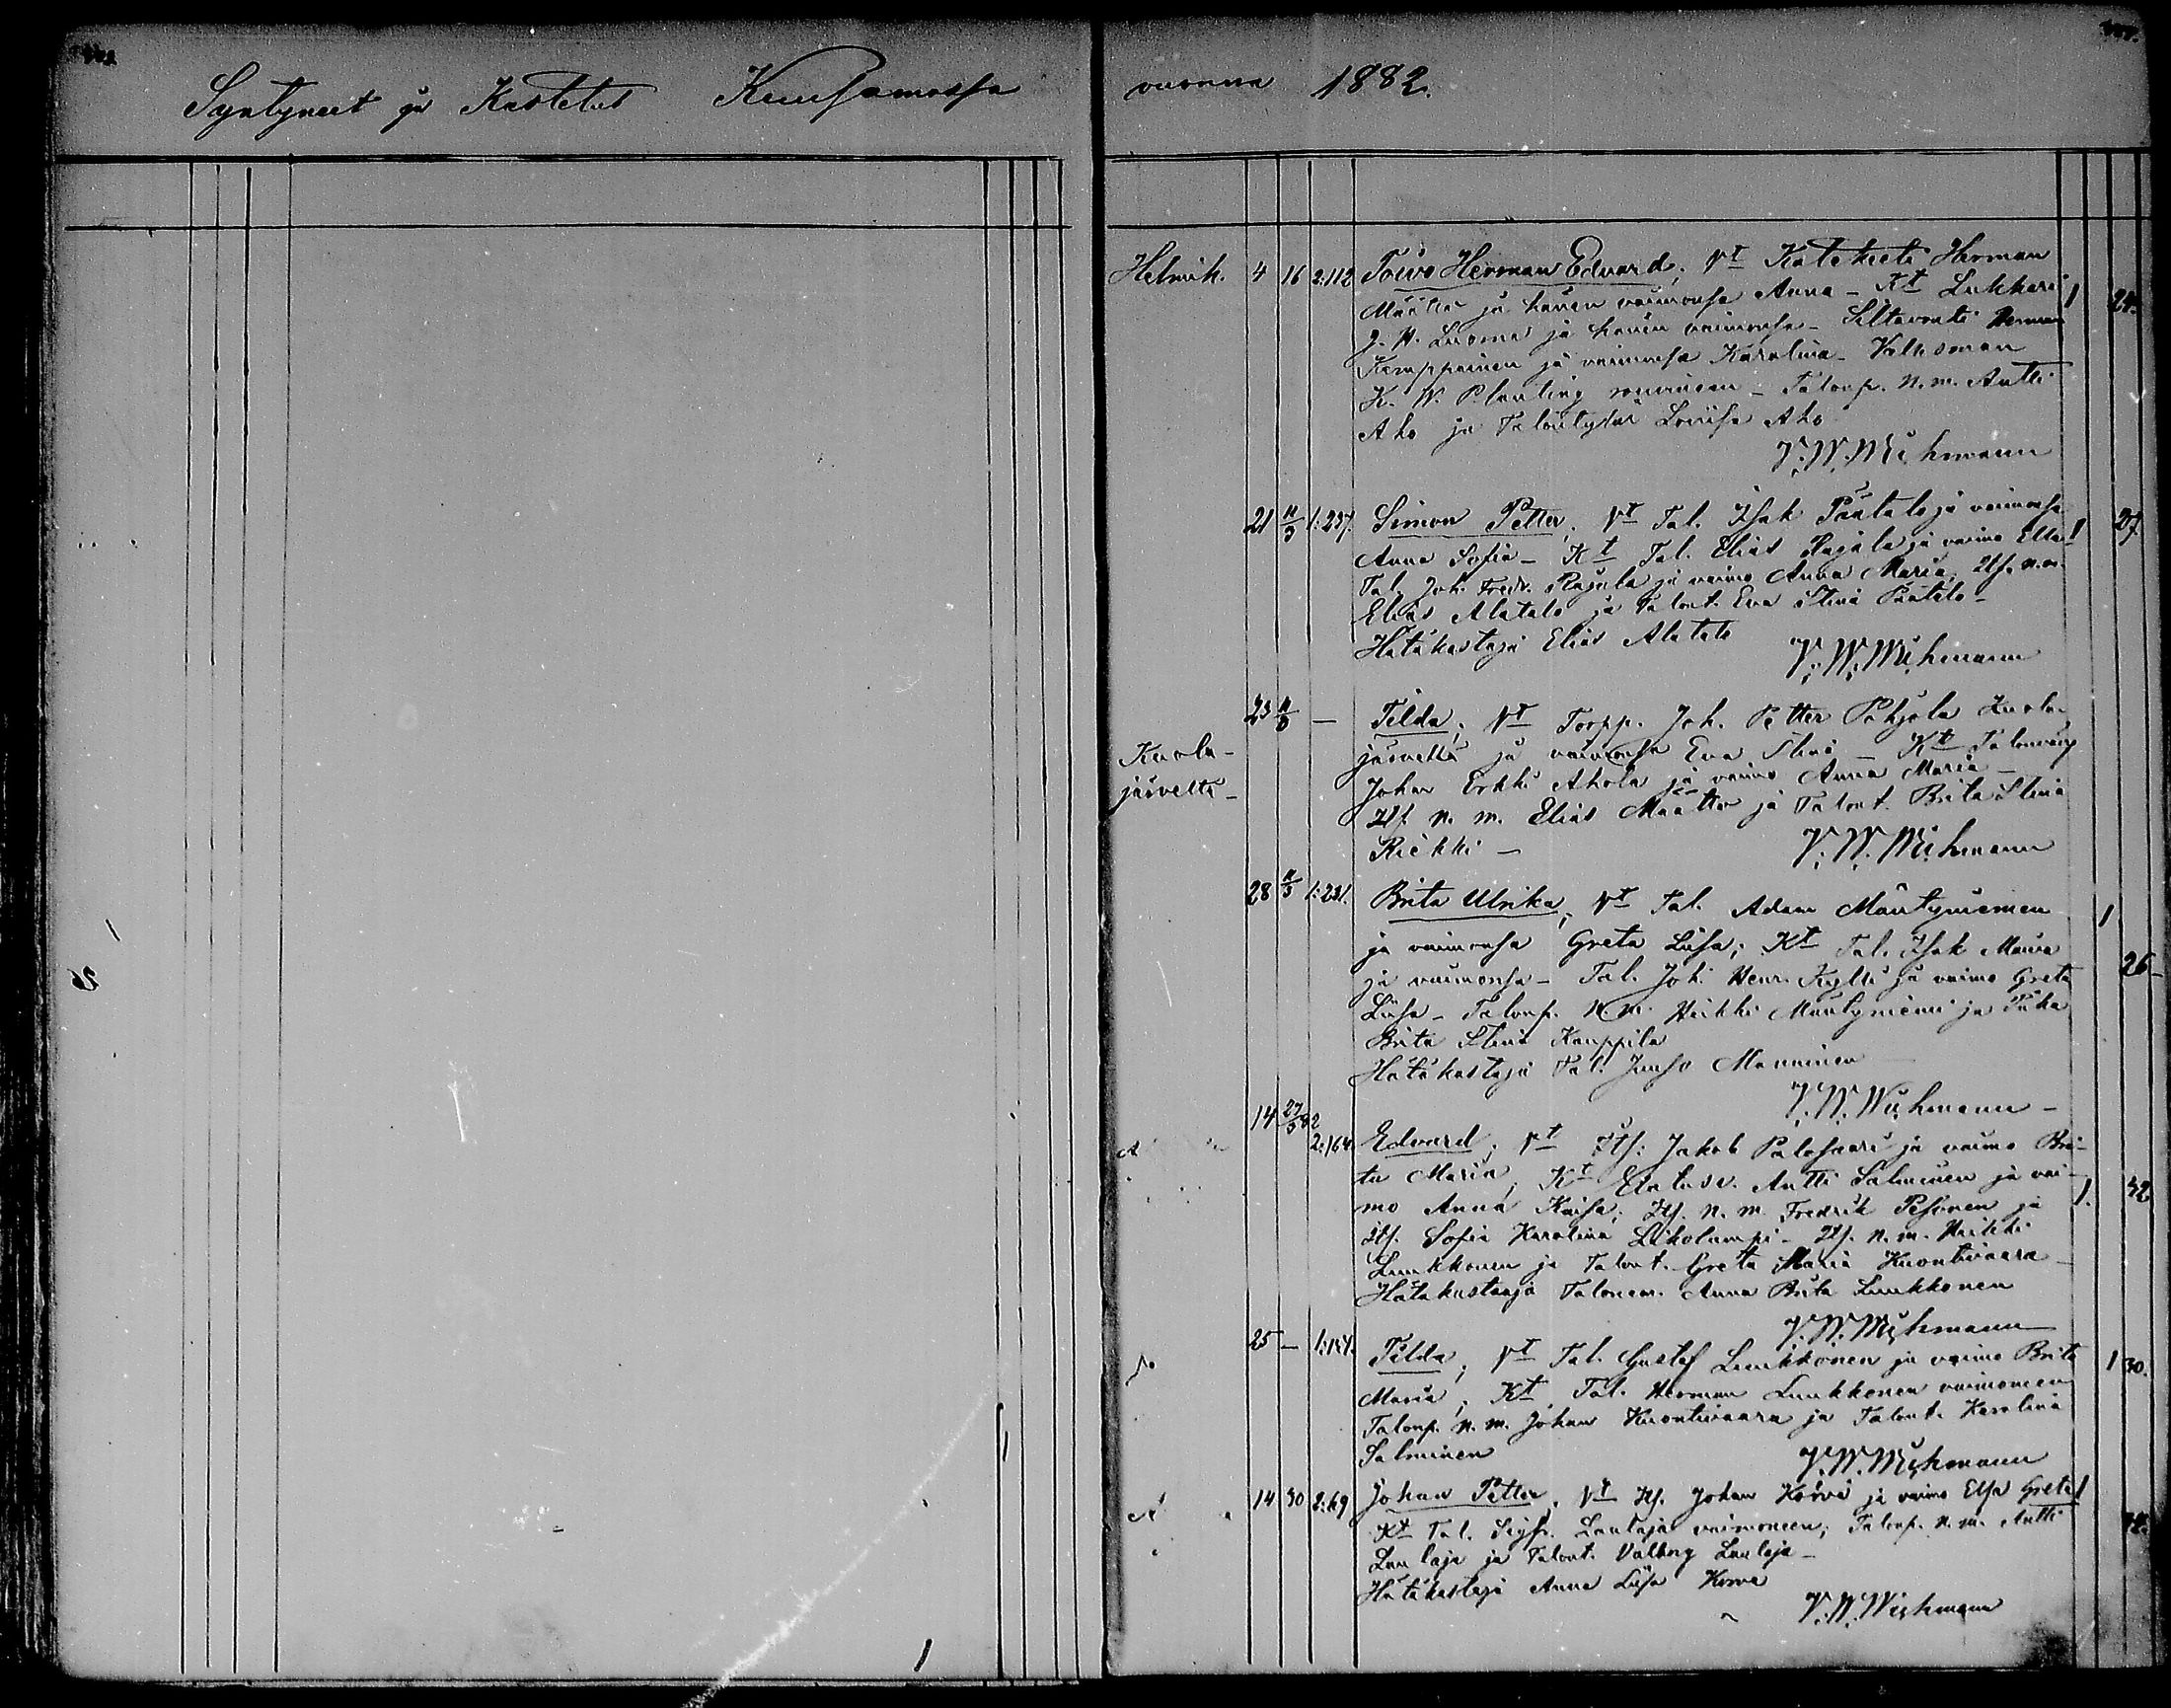 Syntyneet ja Kastetut Kuusamossa vuonna 1882.
Helmik. 4 16 2:112 Toivo Herman Edvard; Vt Katekeeti Herman
Määttä ja hänen vaimonsa Anna - Kt Lukkari 1 24.
J. H. Luoma ja hänen vaimonsa - Siltavouti Herman
Kemppainen ja vaimonsa Karolina - Valtesman
K. W. Planting rouvineen - Talonp. n. m. Antti
Aho ja Talontytär Lovisa Aho
V. W. Wichmann
21 11/3 1:237. Simon Petter, Vt Tal. Isak Päätalo ja vaimonsa
Anna Sofia - Kt Tal. Elias Rajala ja vaimo Ella 1 27.
Tal. Joh. Fredr. Rajala ja vaimo Anna Maria, Its. n. m.
Elias Alatalo ja Talont. Eva Stina Päätalo -
Hätäkastaja Elias Alatalo
V. W. Wichmann
23 11/3 - Tilda, Vt Torpp. Joh. Petter Pohjola Kuola-
Kuola-
järveltä ja vaimonsa Eva Stina - Kt Talonvävy
järveltä -
Johan Erkki Ahola ja vaimo Anna Maria -
Its. n. m. Elias Määttä ja Talont. Brita Stina
Riekki -
V. W. Wichmann
28 11/3 1:231. Brita Ulrika, Vt Tal. Adam Mäntyniemen 1
ja vaimonsa Greta Liisa; Kt Tal. Isak Maua
ja vaimonsa - Tal. Joh. Henr. Kylli ja vaimo Greta 26 -
Liisa - Talonp. n. m. Heikki Mäntyniemi ja Piika
Brita Stina Kauppila
Hätäkastaja Tal. Juho Manninen
V. W. Wichmann -
14 27/3 82
2:164. Edvard, Vt Its. Jakob Palosaari ja vaimo Bri-
ta Maria, Kt Elatusv. Antti Salminen ja vai-
mo Anna Kaisa; Its. n. m. Fredrik Pesonen ja 1. 42
Its. Sofia Karolina Likolampi - Its. n. m. Heikki
Luukkonen ja Talont. Greta Maria Kuontivaara -
Hätäkastaaja Talonem. Anna Brita Luukkonen
V. W. Wichmann
25 - 1:147. Tilda, Vt Tal. Gustaf Luukkonen ja vaimo Brita 1 30.
Maria, Kt Tal. Herman Luukkonen vaimoneen
Talonp. n. m. Johan Kuontivaara ja Talont. Karolina
Salminen
V. W. Wichmann
14 30 2:69 Johan Petter, Vt Its. Johan Korva ja vaimo Elsa Greta 1
Kt Tal. Sigfr. Laulaja vaimoneen; Talonp. n. m. Antti
Laulaja ja Talont. Valborg Laulaja -
Hätäkastaja Anna Liisa Korva
V. W. Wichmann